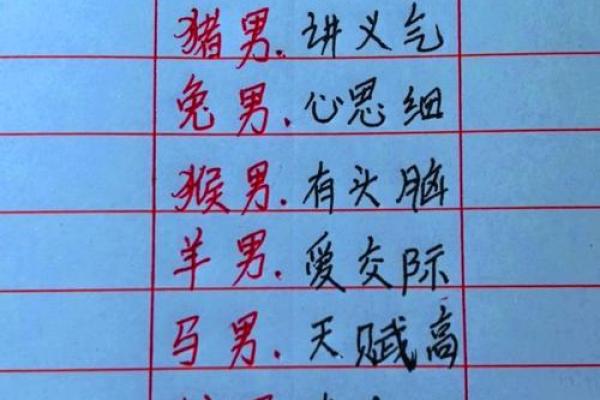 猪男.讲义气
兔男.心思细
猴男.有头脑
羊男.爱交际
马男.天赋高